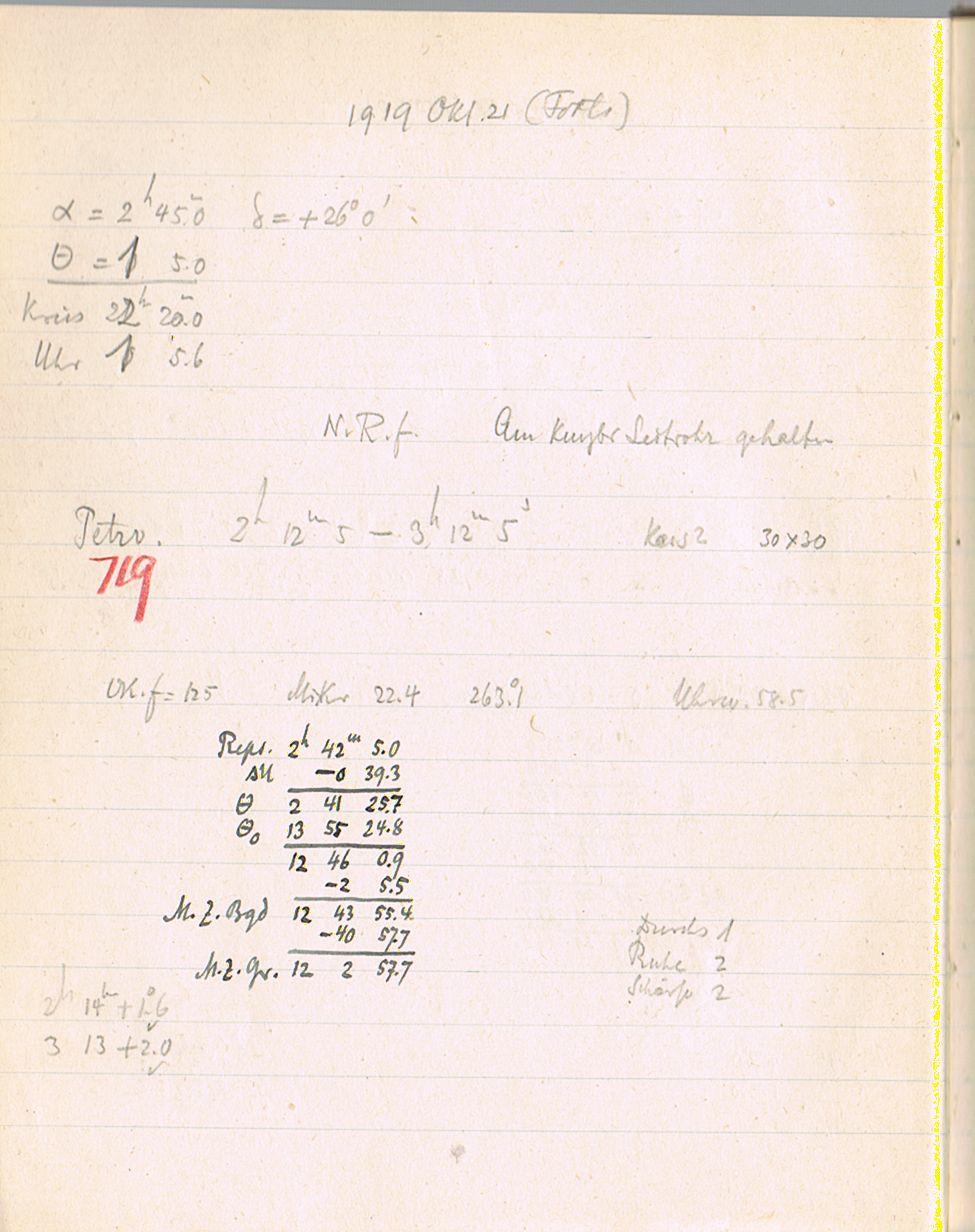 1919 Okt. 21 (Forts)
α = 2h 45.m0 δ = +26° 0'
Θ = 1 5.0
Kreis 22h 20.m0
Uhr 1 5.6
N.R.f. Am Leitrohr gehalten
Petzv. 2h 12m 5 – 3h 12m 5s 30×30
719
Ok. f = 125 Mikr 22.4 263.°1 Uhrw. 58.5
Regs. 2h 42m 5.0
ΔU –0 39.3
Θ 2 41 25.7
Θ0 13 55 24.8
12 46 0.9
–2 5.5
M.Z. Bgd 12 43 55.4
–40 57.7
M.Z. Gr. 12 2 57.7
Durchs 1
Ruhe 2
Schärfe 2
2h 14m +1.°6
3 13 +2.0